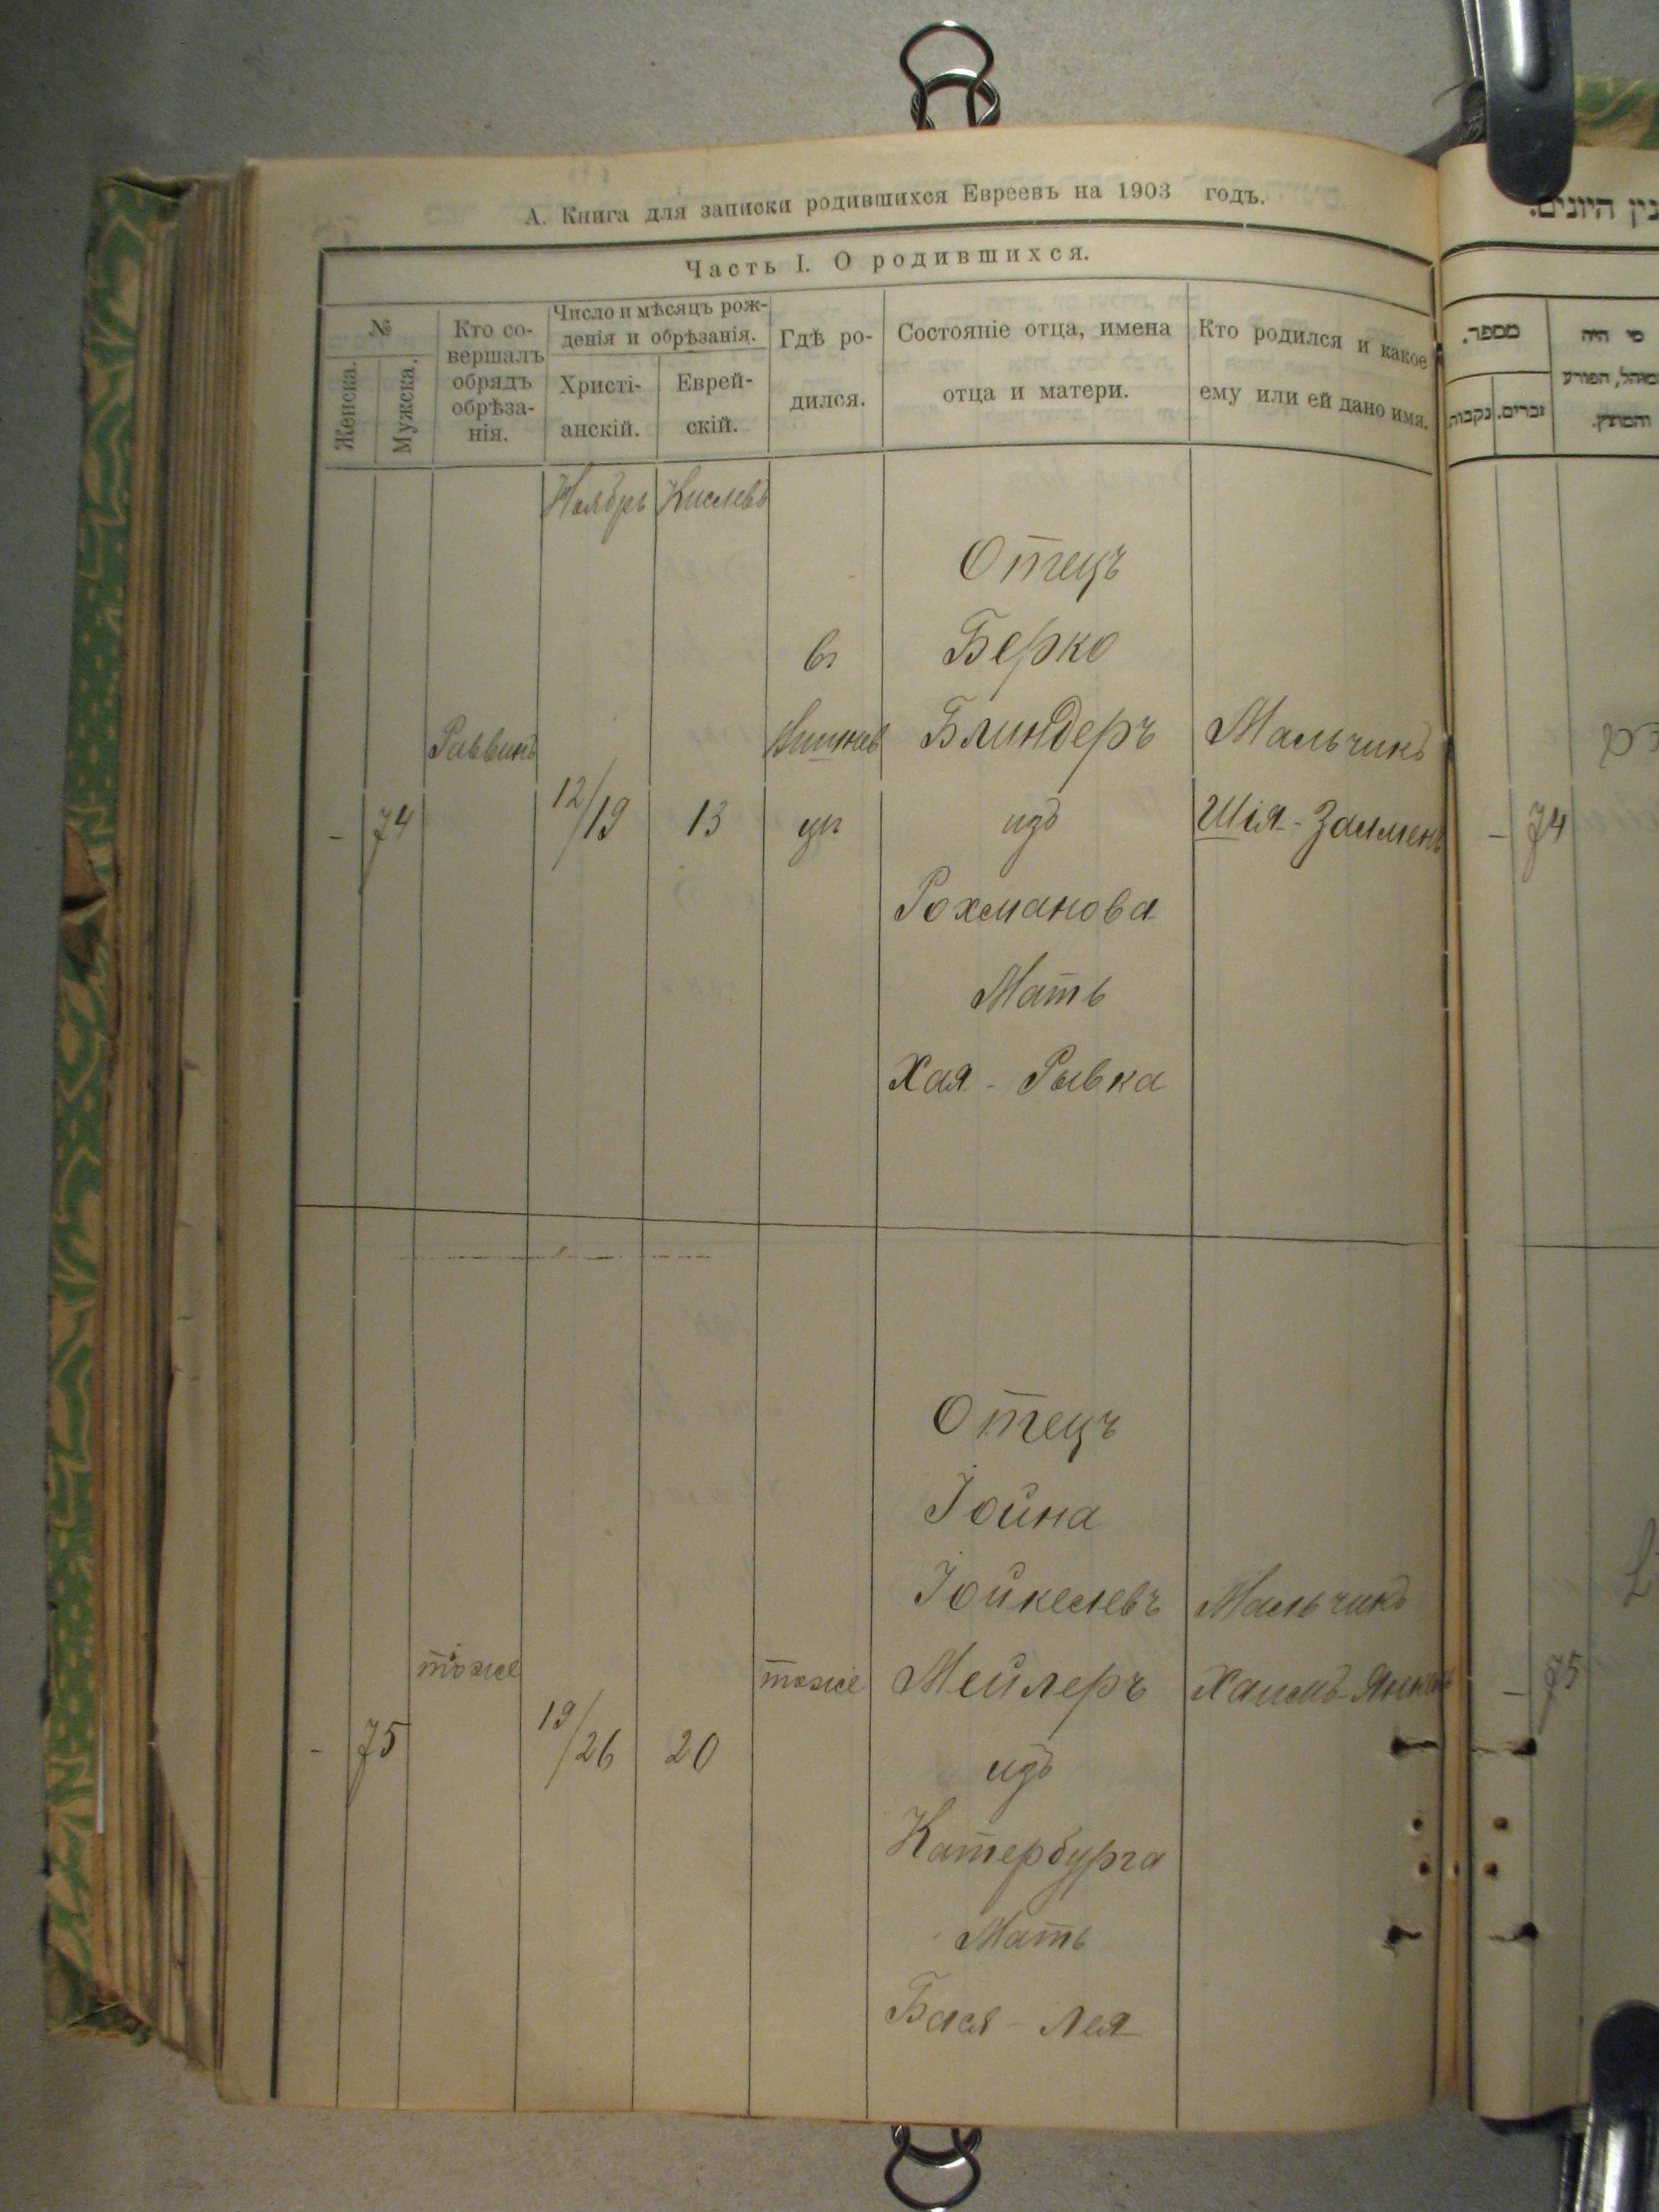 А. Книга для записки родившихся Евреевъ на 1903 годъ.
Часть I. О родившихся.
№
Женска.
Мужска.
Кто со-
вершалъ
обрядъ
обрѣза-
нія.
Число и мѣсяцъ рож-
денія и обрѣзанія.
Христі-
анскій.
Еврей-
скій.
Гдѣ ро-
дился.
Состояніе отца, имена
отца и матери.
Кто родился и какое
ему или ей дано имя.
Ноябрь Кислевъ
- 74
Раввинъ
12/19
13
въ
Вишнев
цѣ
Отецъ
Берко
Блиндеръ
изъ
Рохманова
Мать
Хая - Рывка
Мальчикъ
Шія - Залмень
- 75
тоже
19/26
20
тоже
Отецъ
Іойна
Іойкелевъ
Мейлеръ
изъ
Катербурга
Мать
Бася - Лея
Мальчикъ
Хаимъ-
מספר.
זכרים.
נקבות
מי היה
המוהל, הפורע
והמוצץ.
- 74
- 75